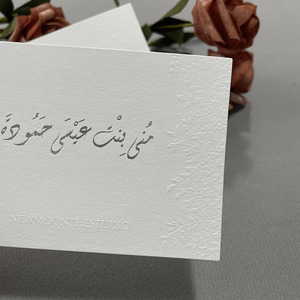 مُنى بِنْتْ عَيْسَى حَمُودَة
NEWMOONTHESTUDIO